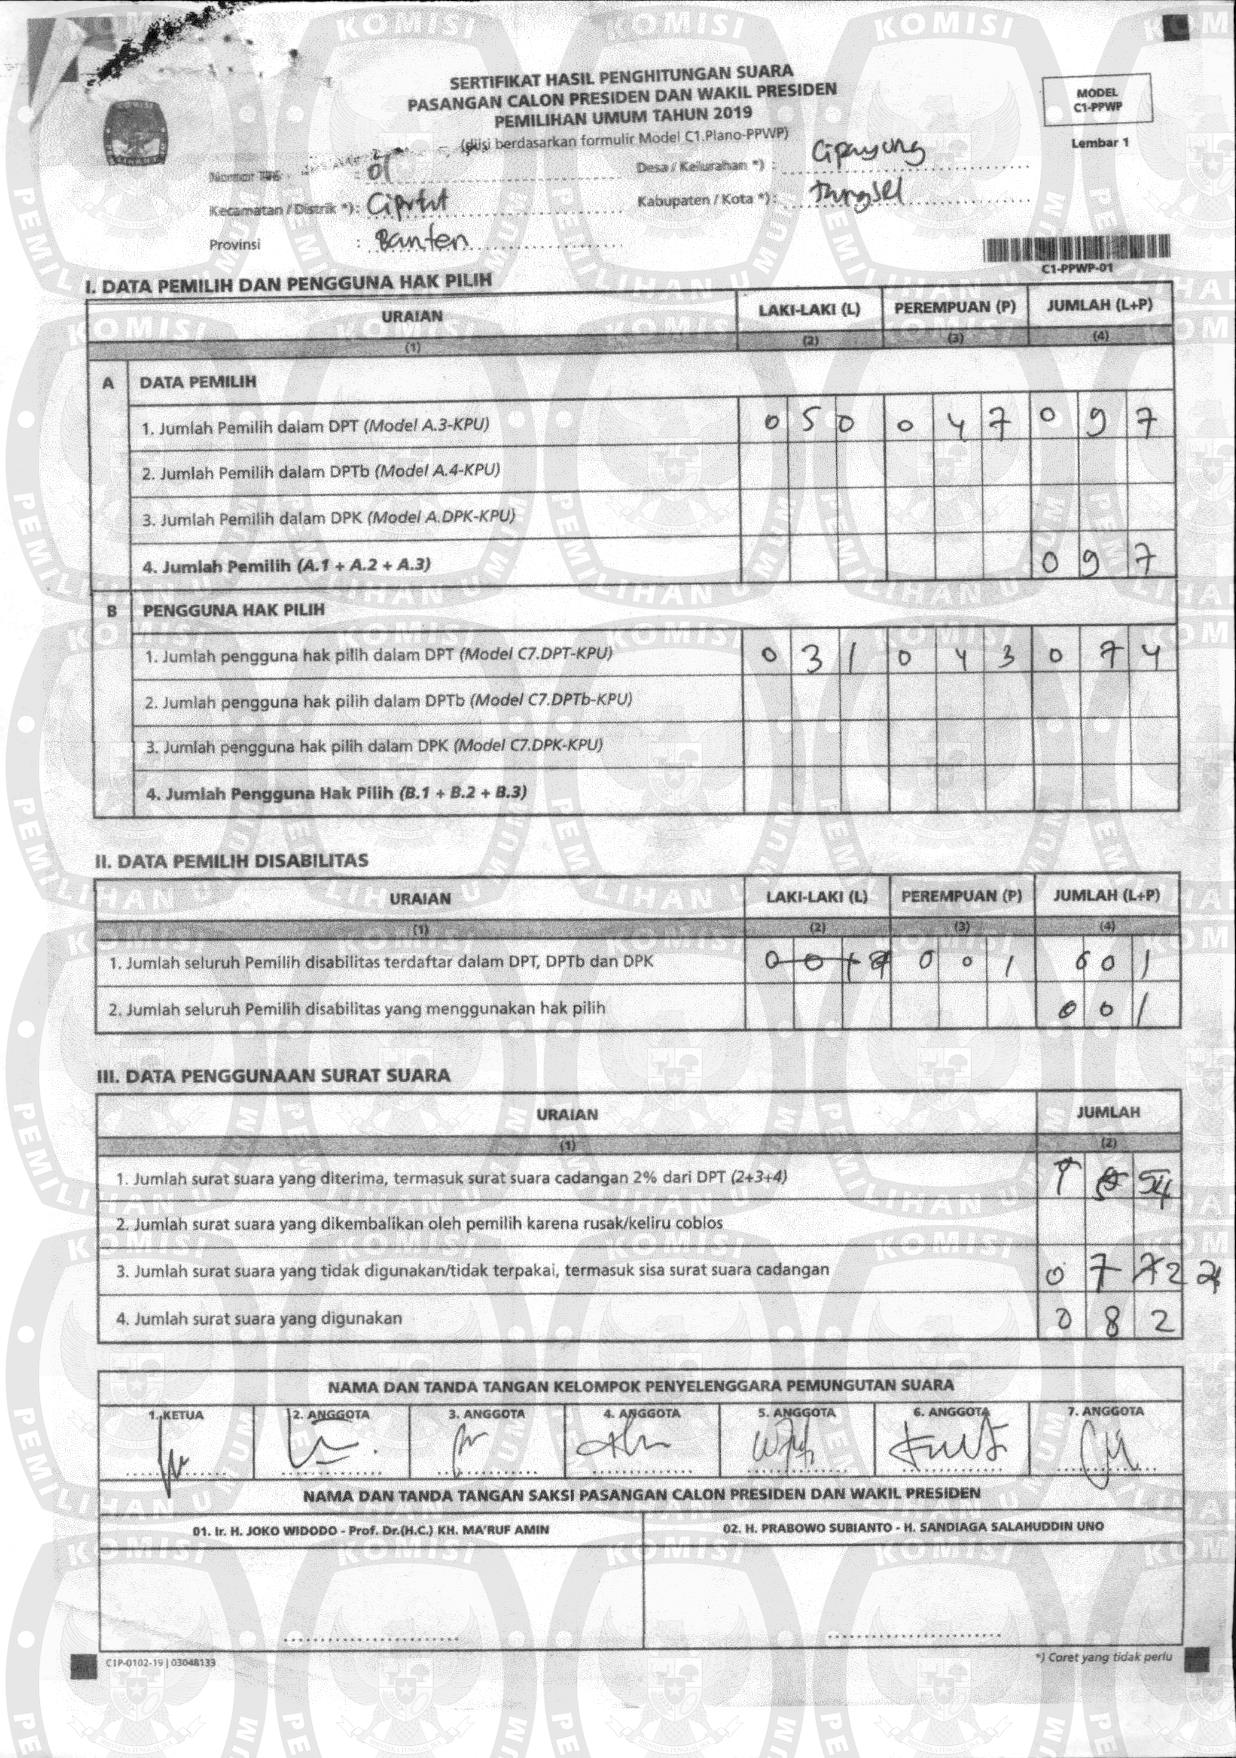 SERTIFIKAT HASIL PENGHITUNGAN SUARA
PASANGAN CALON PRESIDEN DAN WAKIL PRESIDEN
PEMILIHAN UMUM TAHUN 2019
(diisi berdasarkan formulir Model C1.Plano-PPWP)
MODEL
C1-PPWP
Lembar 1
Nomor TPS : 01
Desa / Kelurahan *) : Cipayung
Kecamatan / Distrik *): Ciputat
Kabupaten / Kota *): Tangsel
Provinsi : Banten
C1-PPWP-01
I. DATA PEMILIH DAN PENGGUNA HAK PILIH
URAIAN LAKI-LAKI (L) PEREMPUAN (P) JUMLAH (L+P)
(1) (2) (3) (4)
A DATA PEMILIH
1. Jumlah Pemilih dalam DPT (Model A.3-KPU) 0 5 0 0 4 7 0 9 7
2. Jumlah Pemilih dalam DPTb (Model A.4-KPU)
3. Jumlah Pemilih dalam DPK (Model A.DPK-KPU)
4. Jumlah Pemilih (A.1 + A.2 + A.3) 0 9 7
B PENGGUNA HAK PILIH
1. Jumlah pengguna hak pilih dalam DPT (Model C7.DPT-KPU) 0 3 1 0 4 3 0 7 4
2. Jumlah pengguna hak pilih dalam DPTb (Model C7.DPTb-KPU)
3. Jumlah pengguna hak pilih dalam DPK (Model C7.DPK-KPU)
4. Jumlah Pengguna Hak Pilih (B.1 + B.2 + B.3)
II. DATA PEMILIH DISABILITAS
URAIAN LAKI-LAKI (L) PEREMPUAN (P) JUMLAH (L+P)
(1) (2) (3) (4)
1. Jumlah seluruh Pemilih disabilitas terdaftar dalam DPT, DPTb dan DPK 0 0 1 0 0 1
2. Jumlah seluruh Pemilih disabilitas yang menggunakan hak pilih 0 0 1
III. DATA PENGGUNAAN SURAT SUARA
URAIAN JUMLAH
(1) (2)
1. Jumlah surat suara yang diterima, termasuk surat suara cadangan 2% dari DPT (2+3+4)
2. Jumlah surat suara yang dikembalikan oleh pemilih karena rusak/keliru coblos
3. Jumlah surat suara yang tidak digunakan/tidak terpakai, termasuk sisa surat suara cadangan 0 7
4. Jumlah surat suara yang digunakan 0 8 2
NAMA DAN TANDA TANGAN KELOMPOK PENYELENGGARA PEMUNGUTAN SUARA
1. KETUA 2. ANGGOTA 3. ANGGOTA 4. ANGGOTA 5. ANGGOTA 6. ANGGOTA 7. ANGGOTA
NAMA DAN TANDA TANGAN SAKSI PASANGAN CALON PRESIDEN DAN WAKIL PRESIDEN
01. Ir. H. JOKO WIDODO - Prof. Dr.(H.C.) KH. MA'RUF AMIN
02. H. PRABOWO SUBIANTO - H. SANDIAGA SALAHUDDIN UNO
C1P-0102-19 | 03048133
*) Coret yang tidak perlu